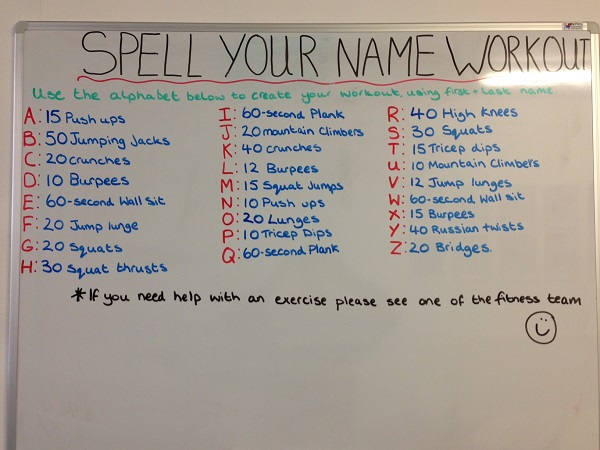 SPELL YOUR NAME WORKOUT
Use the alphabet below to create your workout, using first + last name.
A: 15 Push ups
B: 50 Jumping Jacks
C: 20 crunches
D: 10 Burpees
E: 60-second Wall sit
F: 20 Jump lunge
G: 20 Squats
H: 30 Squat thrusts
I: 60-second Plank
J: 20 mountain Climbers
K: 40 crunches
L: 12 Burpees
M: 15 Squat Jumps
N: 10 Push ups
O: 20 Lunges
P: 10 Tricep Dips
Q: 60-second Plank
R: 40 High Knees
S: 30 Squats
T: 15 Tricep dips
U: 10 Mountain Climbers
V: 12 Jump lunges
W: 60-second Wall sit
X: 15 Burpees
Y: 40 Russian twists
Z: 20 Bridges.
*If you need help with an exercise please see one of the fitness team